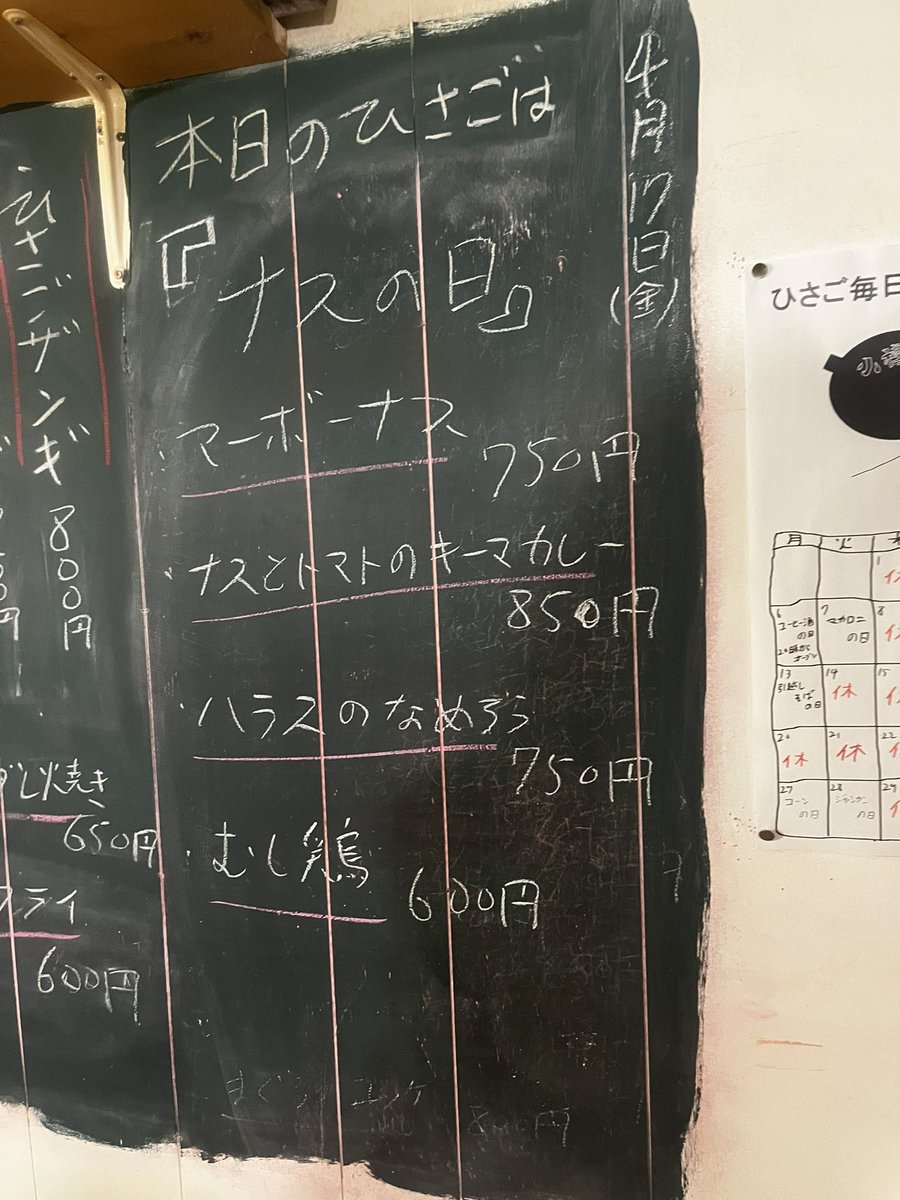 4月17日(金)
本日のひさごは
『ナスの日』
・マーボーナス
750円
・ナスとトマトのキーマカレー
850円
・ハラスのなめろう
750円
・むし鶏
600円
ひさごザンギ
800円
し焼き
650円
フライ
600円
800円
ひさご毎日
月 火
6 コーヒー酒の日 20時からオープン
7 マカロニの日
8
13 引越しそばの日
14 休
15
20 休
21 休
22
27 コーンの日
28 ジャンケンの日
29